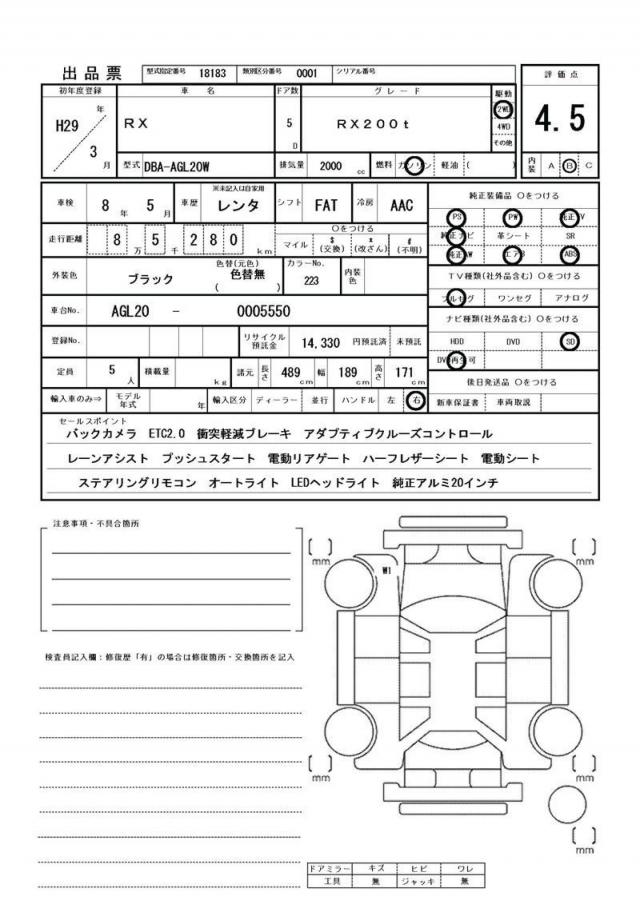 出品票 型式指定番号 18183 類別区分番号 0001 シリアル番号
初年度登録 車名 ドア数 グレード 駆動 評価点
H29 年 3 月 RX 5 D RX200t 2WD 4WD その他 4.5
型式 DBA-AGL20W 排気量 2000 cc 燃料 ガソリン 軽油 ( ) 内装 A B C
車検 8 年 5 月 車歴 ※未記入は自家用 レンタ シフト FAT 冷房 AAC
純正装備品 ○をつける
PS PW 純正TV
純正ナビ 革シート SR
純正AW エアB ABS
走行距離 8 万 5 千 2 8 0 km ○をつける
マイル $ (交換) x (改ざん) # (不明)
TV種類(社外品含む) ○をつける
フルセグ ワンセグ アナログ
外装色 ブラック 色替(元色) 色替無 ( ) カラーNo. 223 内装色
ナビ種類(社外品含む) ○をつける
HDD DVD SD
DVD再生可
車台No. AGL20 - 0005550
登録No. リサイクル預託金 14,330 円預託済 未預託
定員 5 人 積載量 kg 諸元 長さ 489 cm 幅 189 cm 高さ 171 cm
後日発送品 ○をつける
新車保証書 車両取説
輸入車のみ⇒ モデル年式 年 輸入区分 ディーラー 並行 ハンドル 左 右
セールスポイント
バックカメラ ETC2.0 衝突軽減ブレーキ アダプティブクルーズコントロール
レーンアシスト プッシュスタート 電動リアゲート ハーフレザーシート 電動シート
ステアリングリモコン オートライト LEDヘッドライト 純正アルミ20インチ
注意事項・不具合箇所
[ ] mm
[ ] mm
W1
検査員記入欄：修復歴「有」の場合は修復箇所・交換箇所を記入
[ ] mm
[ ] mm
[ ] mm
ドアミラー キズ ヒビ ワレ
工具 無 ジャッキ 無